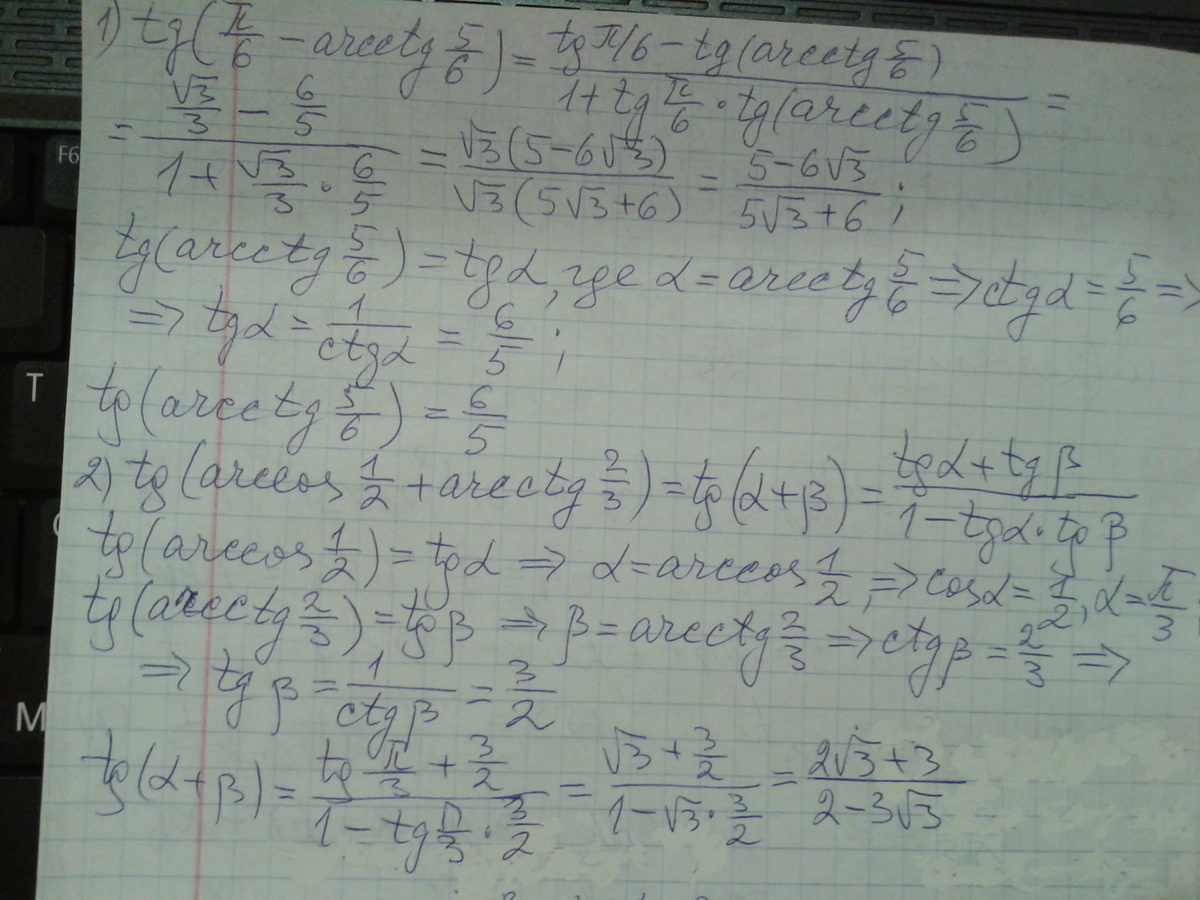 1) tg(π/6 − arcctg 5/6) = (tg π/6 − tg(arcctg 5/6)) / (1 + tg π/6 · tg(arcctg 5/6)) =
= (√3/3 − 6/5) / (1 + √3/3 · 6/5) = √3(5−6√3) / √3(5√3+6) = (5−6√3) / (5√3+6) ;
tg(arcctg 5/6) = tgα, где α = arcctg 5/6 ⇒ ctgα = 5/6 ⇒
⇒ tgα = 1/ctgα = 6/5 ;
tg(arcctg 5/6) = 6/5
2) tg(arccos 1/2 + arcctg 2/3) = tg(α+β) = (tgα + tgβ) / (1 − tgα · tgβ)
tg(arccos 1/2) = tgα ⇒ α = arccos 1/2, ⇒ cosα = 1/2, α = π/3
tg(arcctg 2/3) = tgβ ⇒ β = arcctg 2/3 ⇒ ctgβ = 2/3 ⇒
⇒ tgβ = 1/ctgβ = 3/2
tg(α+β) = (tg π/3 + 3/2) / (1 − tg π/3 · 3/2) = (√3 + 3/2) / (1 − √3 · 3/2) = (2√3+3) / (2−3√3)
F6
T
M